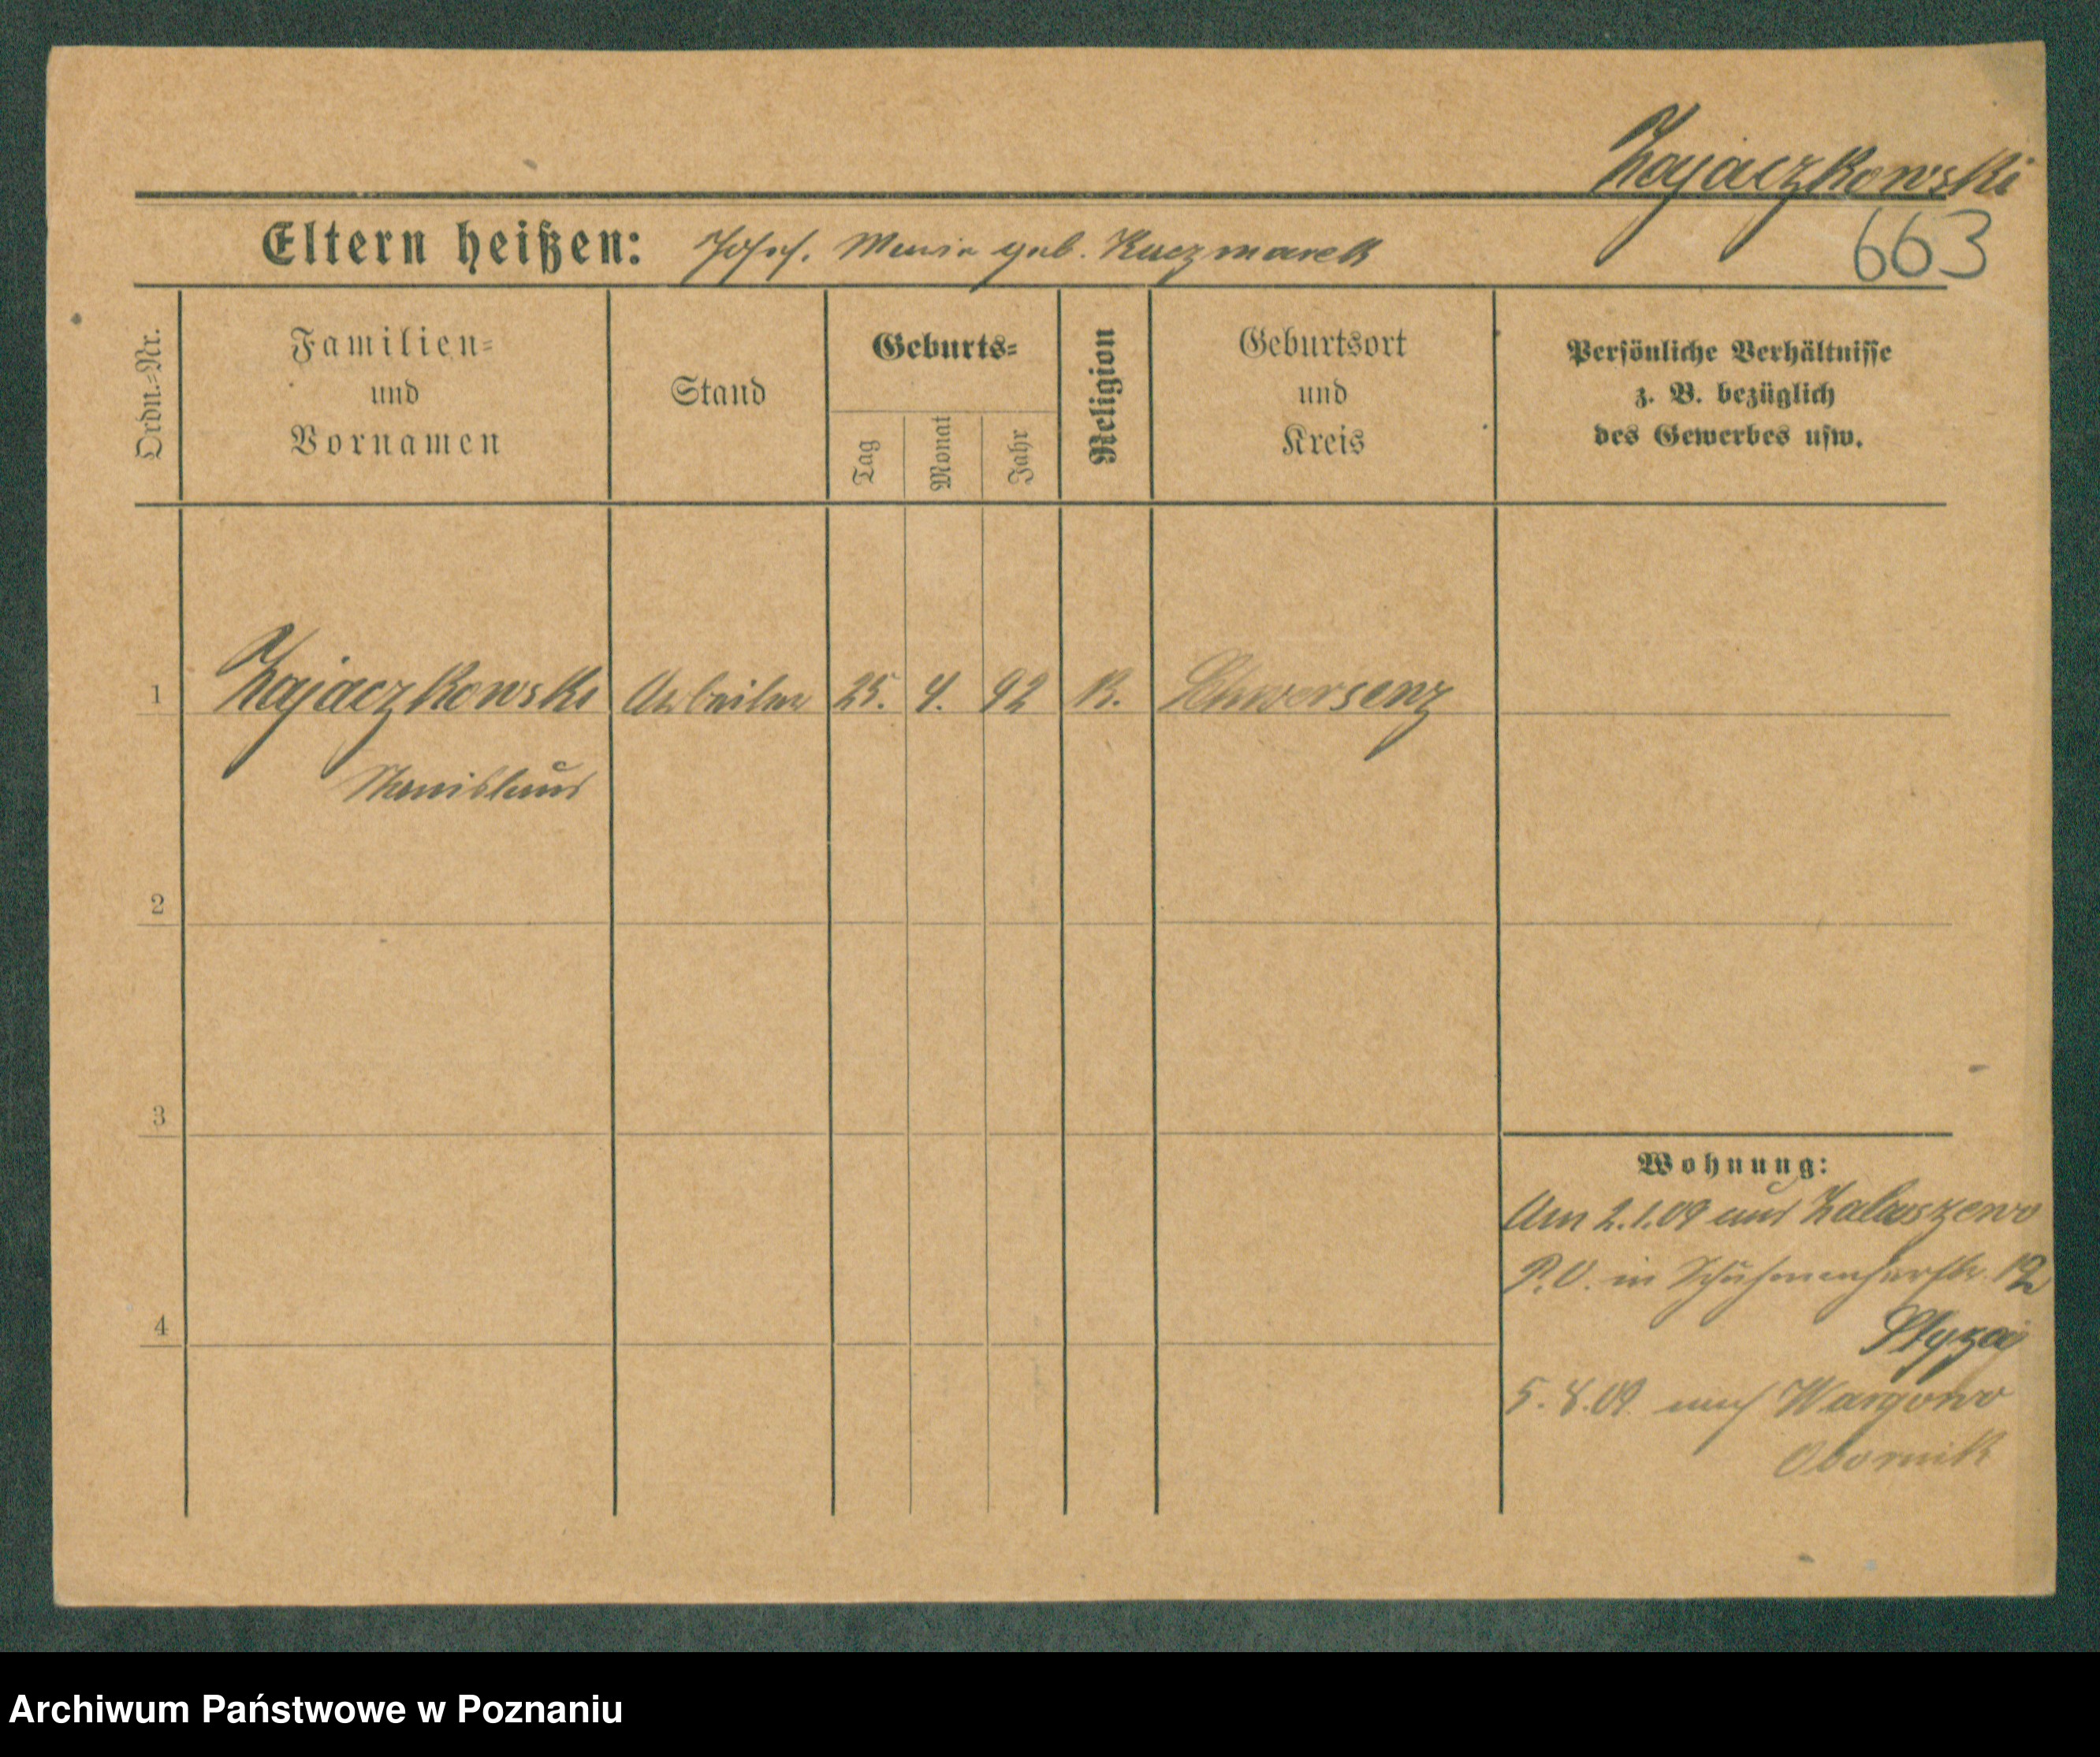 Zajaczkowski
663
Eltern heißen: Josef. Maria geb. Kaczmarek
Ordn.-Nr.
Familien-
und
Vornamen
Stand
Geburts-
Tag
Monat
Jahr
Religion
Geburtsort
und
Kreis
Persönliche Verhältnisse
z. B. bezüglich
des Gewerbes usw.
1 Zajaczkowski Arbeiter 25. 4. 92 K. Schwersenz
Stanislaus
2
3
4
Wohnung:
Am 2.1.09 aus Zalaszewo
P.O. in Schuhmacherstr. 12
5.8.09. nach Wargowo
Obornik
Archiwum Państwowe w Poznaniu